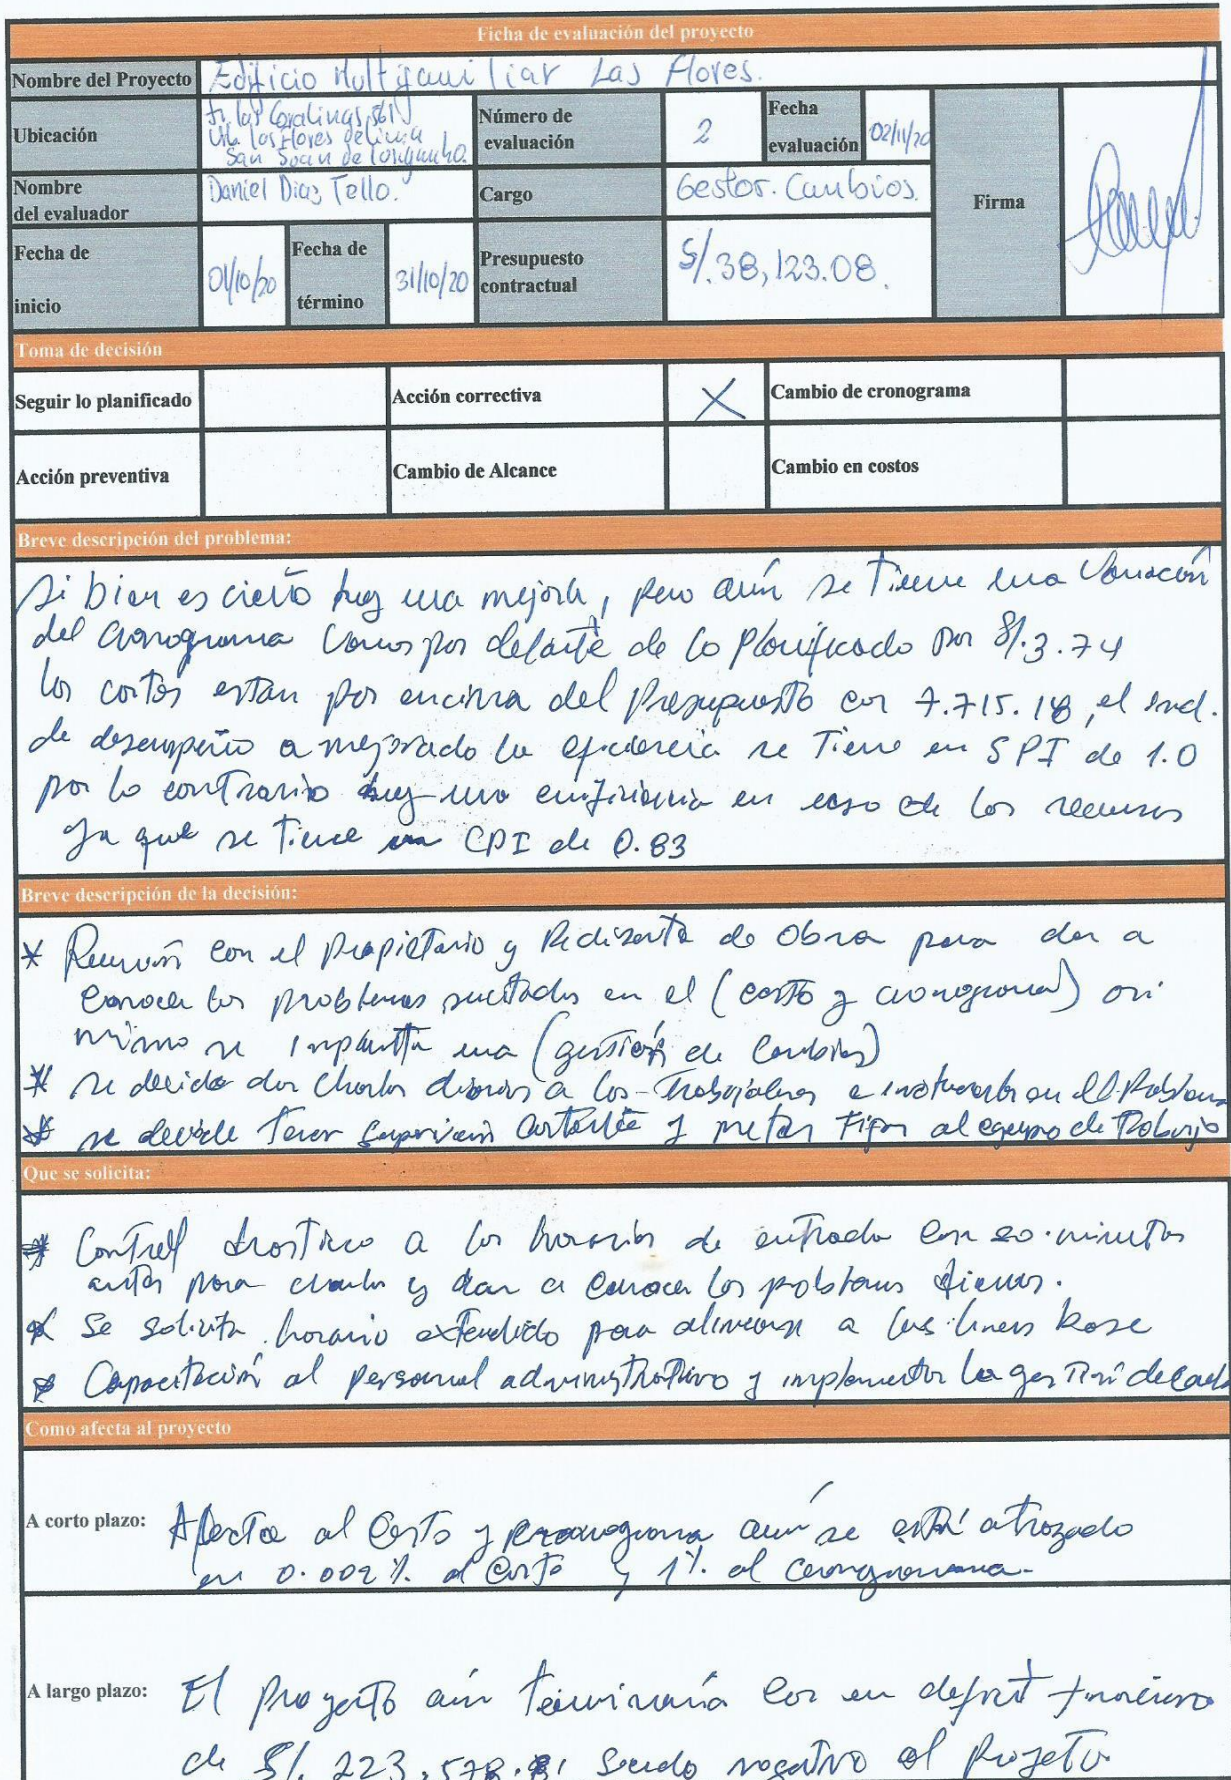 Ficha de evaluación del proyecto
Nombre del Proyecto Edificio Multifamiliar Las Flores.
Ubicación Jr. las Coralinas 561 Urb las Flores de Lima San Juan de Lurigancho.
Número de evaluación 2
Fecha evaluación 02/11/20
Nombre del evaluador Daniel Dias Tello.
Cargo Gestor. Cambios.
Firma
Fecha de inicio 01/10/20
Fecha de término 31/10/20
Presupuesto contractual S/. 38,123.08.
Toma de decisión
Seguir lo planificado
Acción correctiva X
Cambio de cronograma
Acción preventiva
Cambio de Alcance
Cambio en costos
Breve descripción del problema:
Si bien es cierto hay una mejora, pero aún se tiene una Variación
del cronograma vamos por delante de lo planificado por S/. 3.74
los costos estan por encima del Presupuesto con 7.715.18, el ind.
de desempeño a mejorado la eficiencia se tiene en SPI de 1.0
por lo contrario hay una en caso de los recursos
ya que se tiene un CPI de 0.83
Breve descripción de la decisión:
* Reunión con el Propietario y Recidente de Obra para dar a
conocer los problemas sucitados en el (costo y cronograma) asi
mismo se implanta una (gestión de Cambios)
* se decide dar charlas diarias a los trabajadores e en el Problema
* se decide tener supervisión constante y metas Fijas al equipo de Trabajo
Que se solicita:
* Control drastico a los horarios de entrada con 20 minutos
antes para charla y dar a conocer los problemas diarios.
* Se solicita horario extendido para alinearse a las lineas base
* Capacitación al personal administrativo y implementar la gestión de
Como afecta al proyecto
A corto plazo: Afecta al Costo y cronograma aún se está atrazado
en 0.002 % al Costo y 1% al cronograma.
A largo plazo: El proyecto aún terminaría con un deficit financiero
de S/. 223,578. siendo negativo al Proyecto